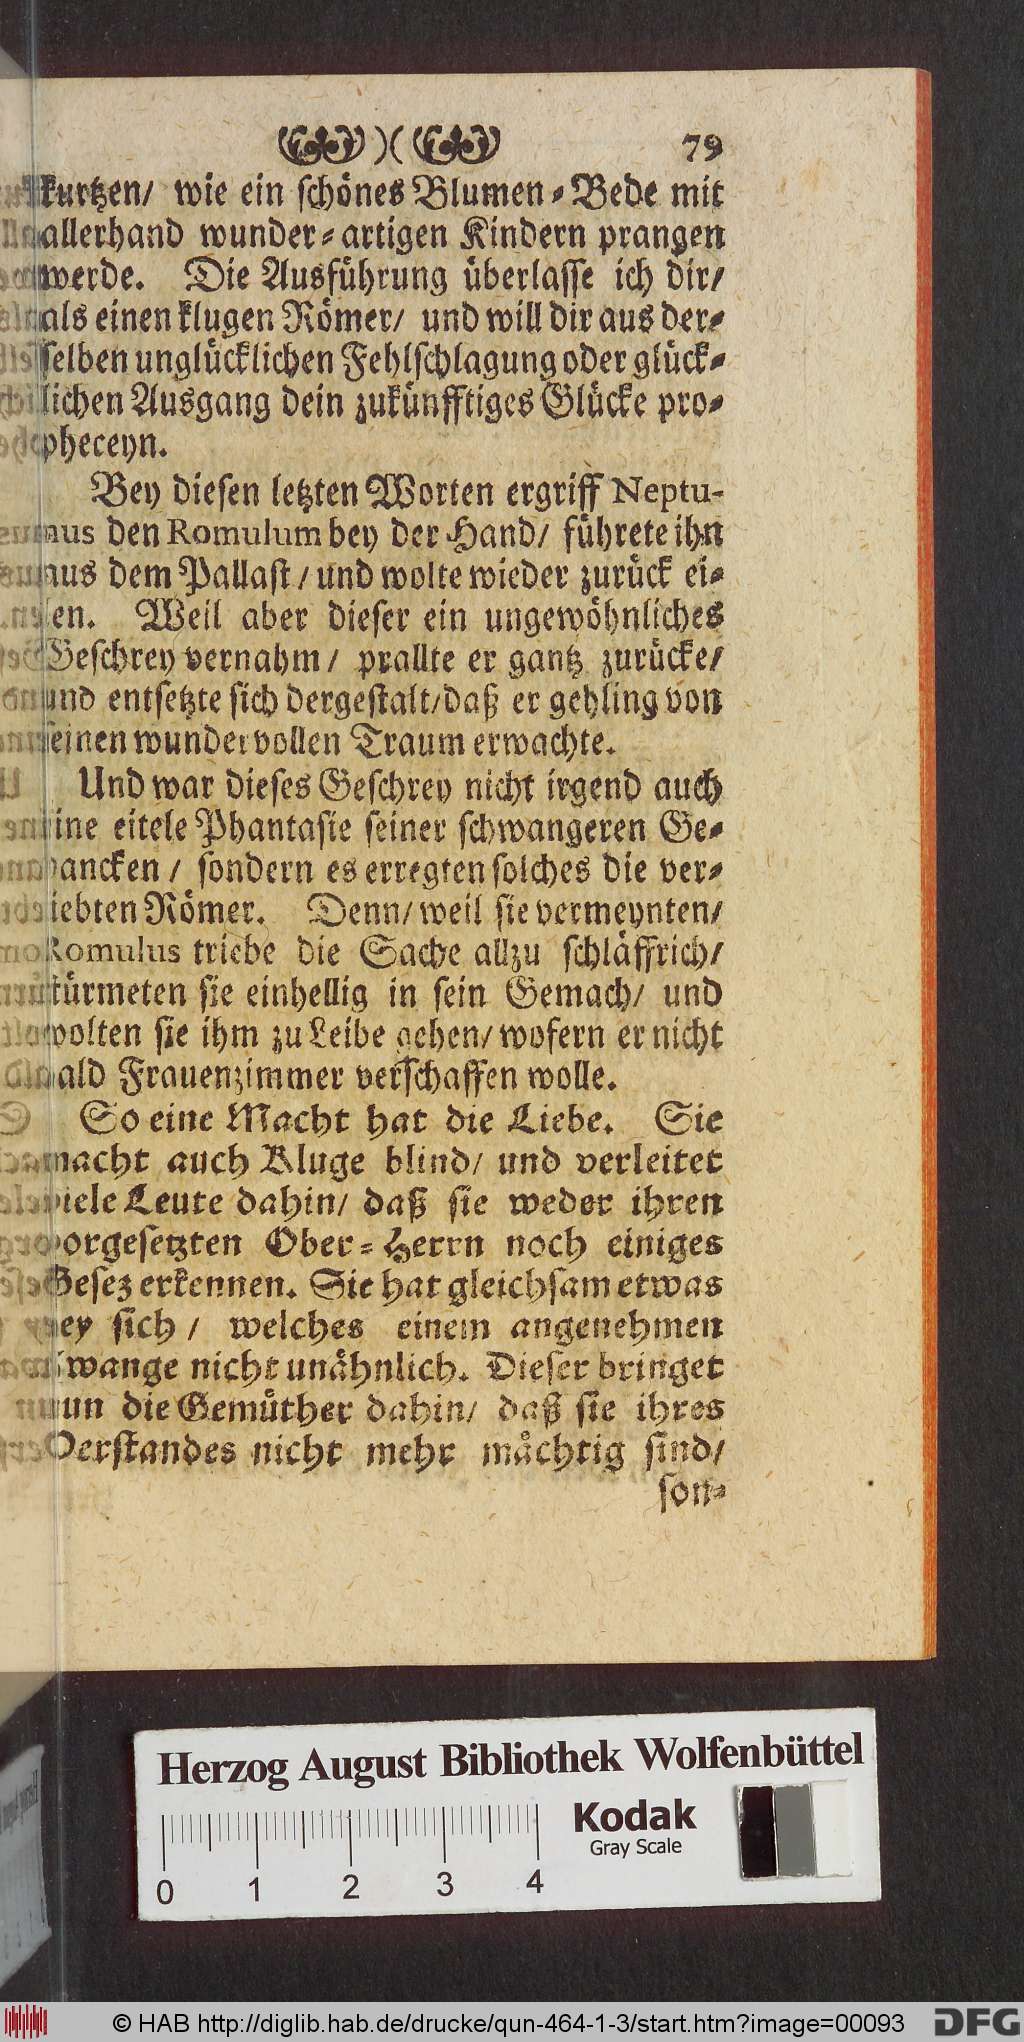 )( 79
kurtzen/ wie ein schönes Blumen-Bede mit
allerhand wunder-artigen Kindern prangen
werde. Die Ausführung überlasse ich dir/
als einen klugen Römer/ und will dir aus der-
selben unglücklichen Fehlschlagung oder glück-
lichen Ausgang dein zukünfftiges Glücke pro-
pheceyn.
Bey diesen letzten Worten ergriff Neptu-
nus den Romulum bey der Hand/ führete ihn
aus dem Pallast/ und wolte wieder zurück ei-
len. Weil aber dieser ein ungewöhnliches
Geschrey vernahm/ prallte er gantz zurücke/
und entsetzte sich dergestalt/ daß er gehling von
seinen wundervollen Traum erwachte.
Und war dieses Geschrey nicht irgend auch
eine eitele Phantasie seiner schwangeren Ge-
dancken/ sondern es erregten solches die ver-
liebten Römer. Denn/ weil sie vermeynten/
Romulus triebe die Sache allzu schläffrich/
stürmeten sie einhellig in sein Gemach/ und
wolten sie ihm zu Leibe gehen/ wofern er nicht
bald Frauenzimmer verschaffen wolle.
So eine Macht hat die Liebe. Sie
macht auch Kluge blind/ und verleitet
viele Leute dahin/ daß sie weder ihren
vorgesetzten Ober-Herrn noch einiges
Gesez erkennen. Sie hat gleichsam etwas
bey sich/ welches einem angenehmen
Zwange nicht unähnlich. Dieser bringet
nun die Gemüther dahin/ daß sie ihres
Verstandes nicht mehr mächtig sind/
son-
Herzog August Bibliothek Wolfenbüttel
Kodak
Gray Scale
0 1 2 3 4
© HAB http://diglib.hab.de/drucke/qun-464-1-3/start.htm?image=00093 DFG